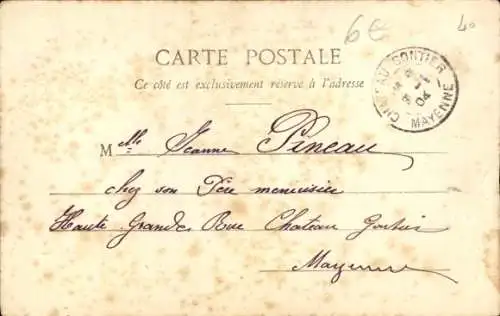 6€
40
CARTE POSTALE
Ce côté est exclusivement réservé à l'adresse
CHATEAU-GONTIER
04
MAYENNE
Melle Jeanne Pineau
chez son Père menuisier
Haute Grande Rue Chateau Gontier
Mayenne